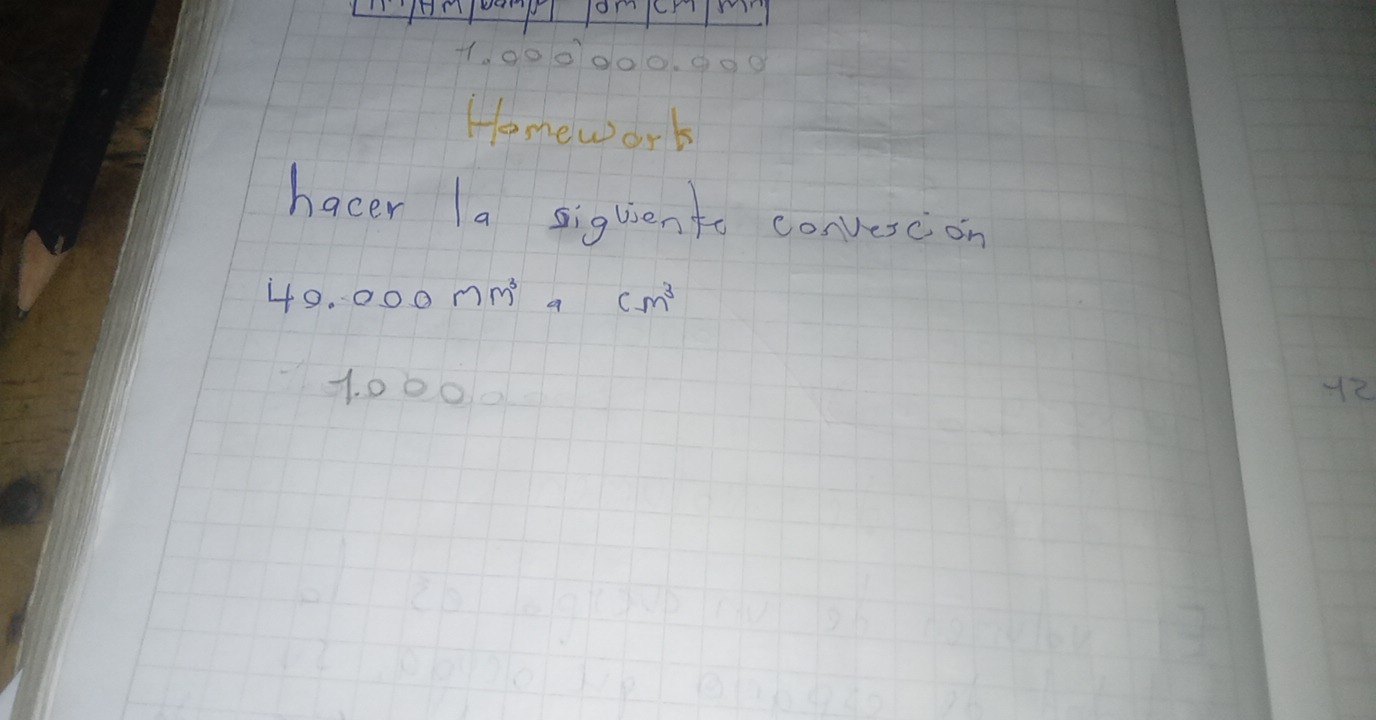 Hm
dm cm mm
1.000'000.000
Homework
hacer la siguiente converción
40.000 mm³ a cm³
1.000
12